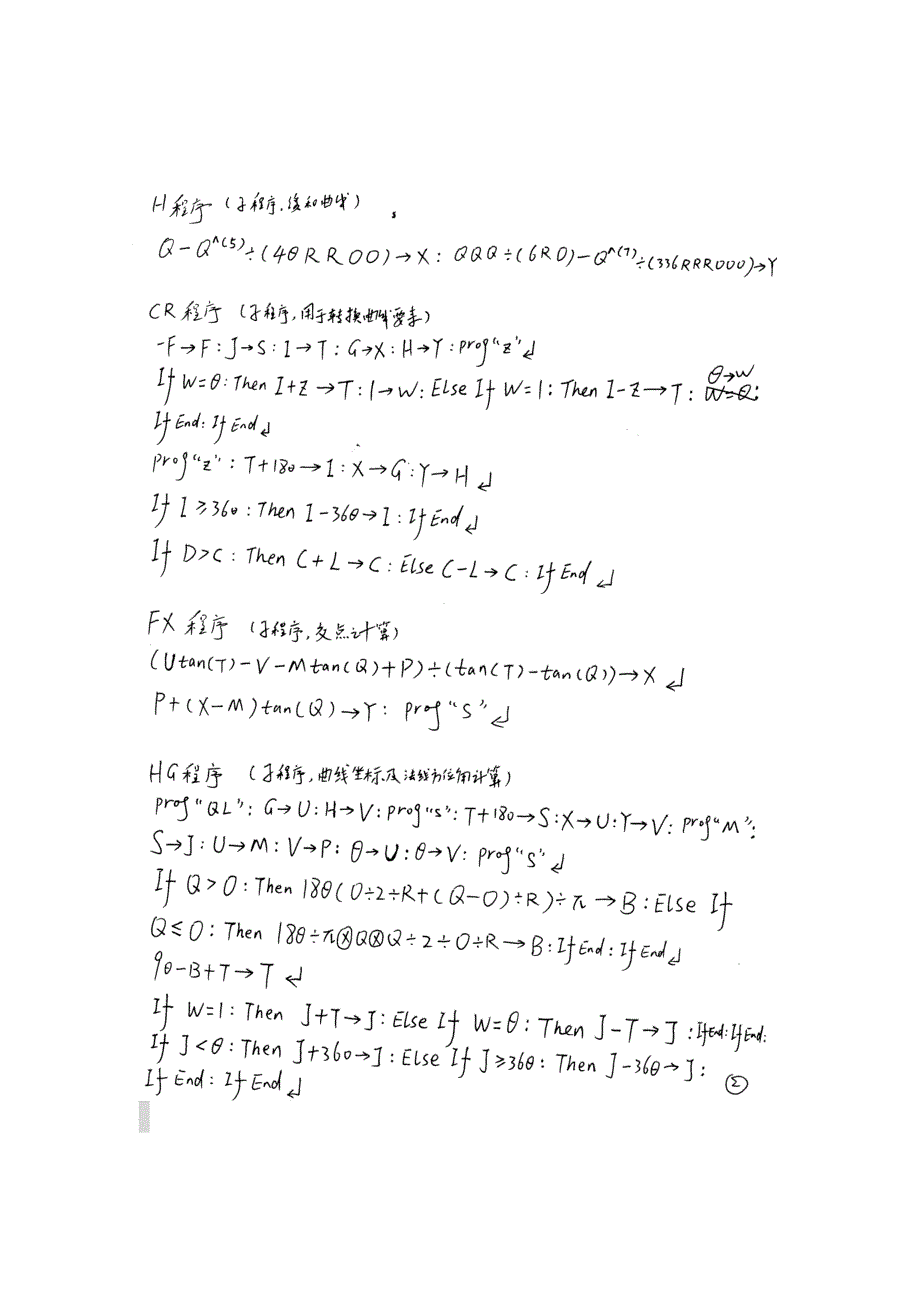 H程序 (子程序,缓和曲线)
Q-Q^(5)÷(4θRROO)→X: QQQ÷(6RO)-Q^(7)÷(336RRROOO)→Y
CR程序 (子程序,用于转换曲线要素)
-F→F:J→S:I→T:G→X:H→Y:prog“Z”↲
If W=θ:Then I+Z→T:1→W:Else If W=1:Then I-Z→T:θ→W:
IfEnd:IfEnd↲
prog“Z”:T+18θ→I:X→G:Y→H↲
If I≥36θ:Then I-36θ→I:IfEnd↲
If D>C:Then C+L→C:Else C-L→C:IfEnd↲
FX程序 (子程序,交点计算)
(Utan(T)-V-Mtan(Q)+P)÷(tan(T)-tan(Q))→X↲
P+(X-M)tan(Q)→Y: prog“S”↲
HG程序 (子程序,曲线坐标及法线方位角计算)
prog“QL”: G→U:H→V:prog“S”:T+180→S:X→U:Y→V: prog“M”:
S→J:U→M:V→P:θ→U:θ→V: prog“S”↲
If Q>O:Then 18θ(O÷2÷R+(Q-O)÷R)÷π→B:Else If
Q≤O:Then 18θ÷π×Q×Q÷2÷O÷R→B:IfEnd:IfEnd↲
9θ-B+T→T↲
If W=1:Then J+T→J:Else If W=θ:Then J-T→J:IfEnd:IfEnd:
If J<θ:Then J+360→J:Else If J≥36θ:Then J-36θ→J:
IfEnd:IfEnd↲
②